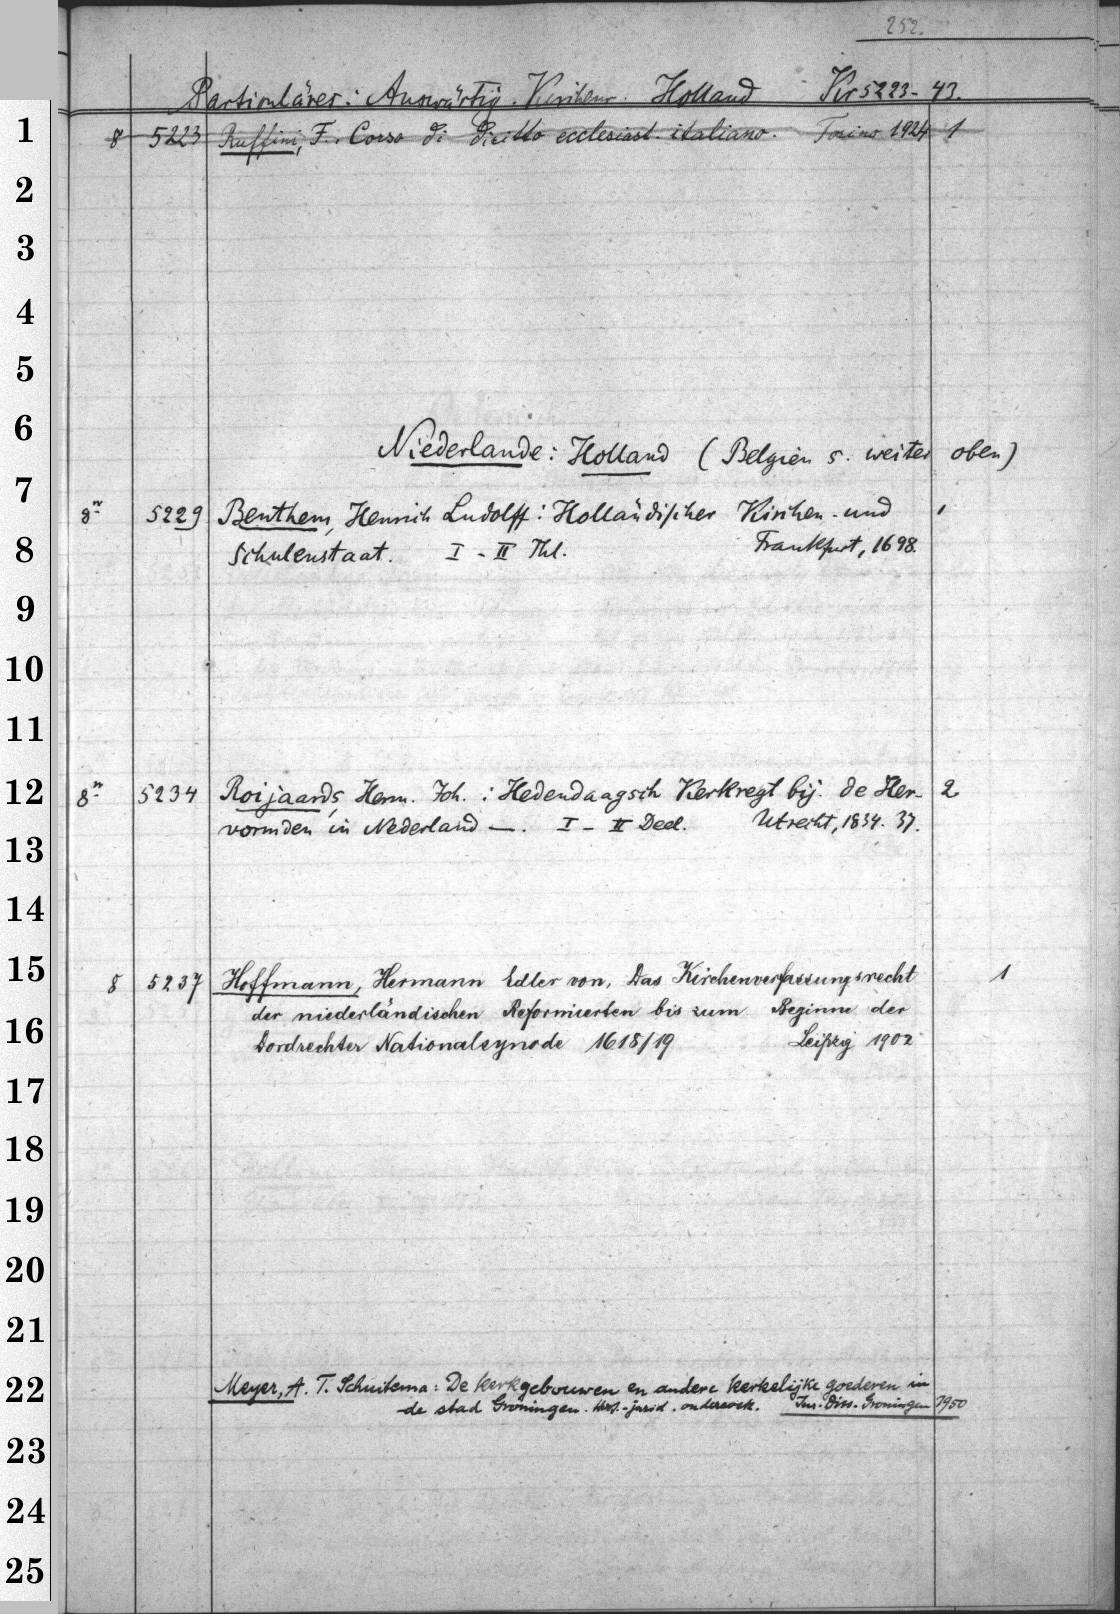 252.
Partikuläres: Auswärtig. Kirchenr. Holland Kir 5223-43.
1 8 5223 Ruffini, F. Corso di diritto ecclesiast. italiano. Torino 1924 1
2
3
4
5
6
Niederlande: Holland (Belgien s. weiter oben)
7
8º 5229 Benthem, Henrich Ludolff: Holländischer Kirchen- und 1
8 Schulenstaat. I - II Thl. Frankfurt, 1698.
9
10
11
12 8º 5234 Roijaards, Herm. Joh.: Hedendaagsch Kerkregt bij de Her- 2
vormden in Nederland —. I - II Deel. Utrecht, 1834. 37.
13
14
15 8 5237 Hoffmann, Hermann Edler von, Das Kirchenverfassungsrecht 1
der niederländischen Reformierten bis zum Beginne der
16 Dordrechter Nationalsynode 1618/19 Leipzig 1902
17
18
19
20
21
22 Meyer, A. T. Schuitema: De kerkgebouwen en andere kerkelijke goederen in
de stad Groningen. Hist.-jurid. onderzoek. Jur. Diss. Groningen 1950
23
24
25